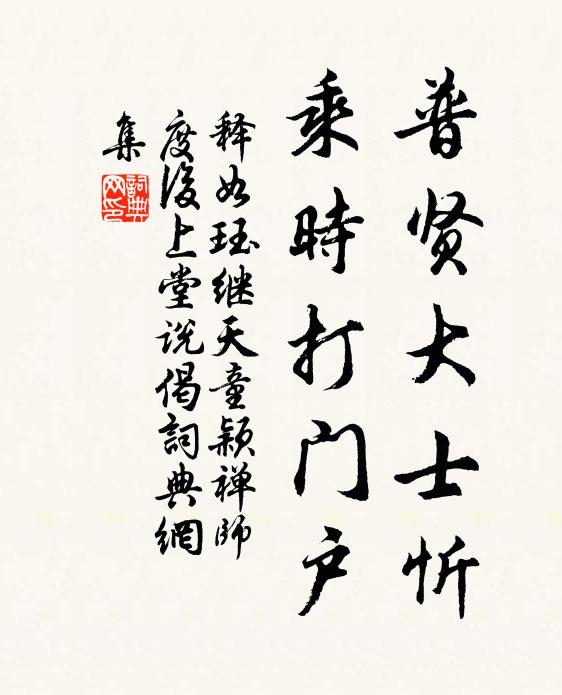 普贤大士忻
乘時打门户
释如珏继天童颖禅师
度後上堂说偈詞典網
集
詞典
网印